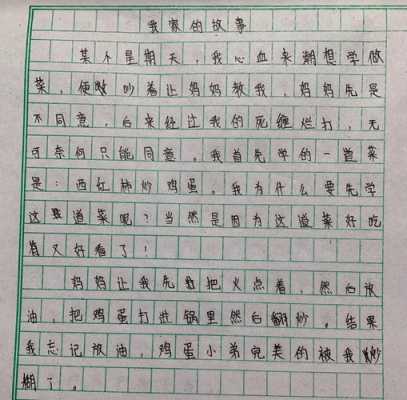 我家的故事
某个星期天，我心血来潮想学做
菜，便吵着让妈妈教我，妈妈先是
不同意，后来经过我的死缠烂打，无
可奈何只能同意。我首先学的一道菜
是：西红柿炒鸡蛋。我为什么要先学
这道菜呢？当然是因为这道菜好吃
有又好看了！
妈妈让我先把火点着，然后放
油，把鸡蛋打进锅里然后翻炒。结果
我忘记放油，鸡蛋小弟完美的被我炒
糊了。